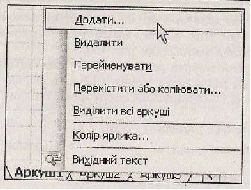 Додати...
Видалити
Перейменувати
Перемістити або копіювати...
Виділити всі аркуші
Колір ярлика...
Вихідний текст
Аркуш1 Аркуш2 Аркуш3